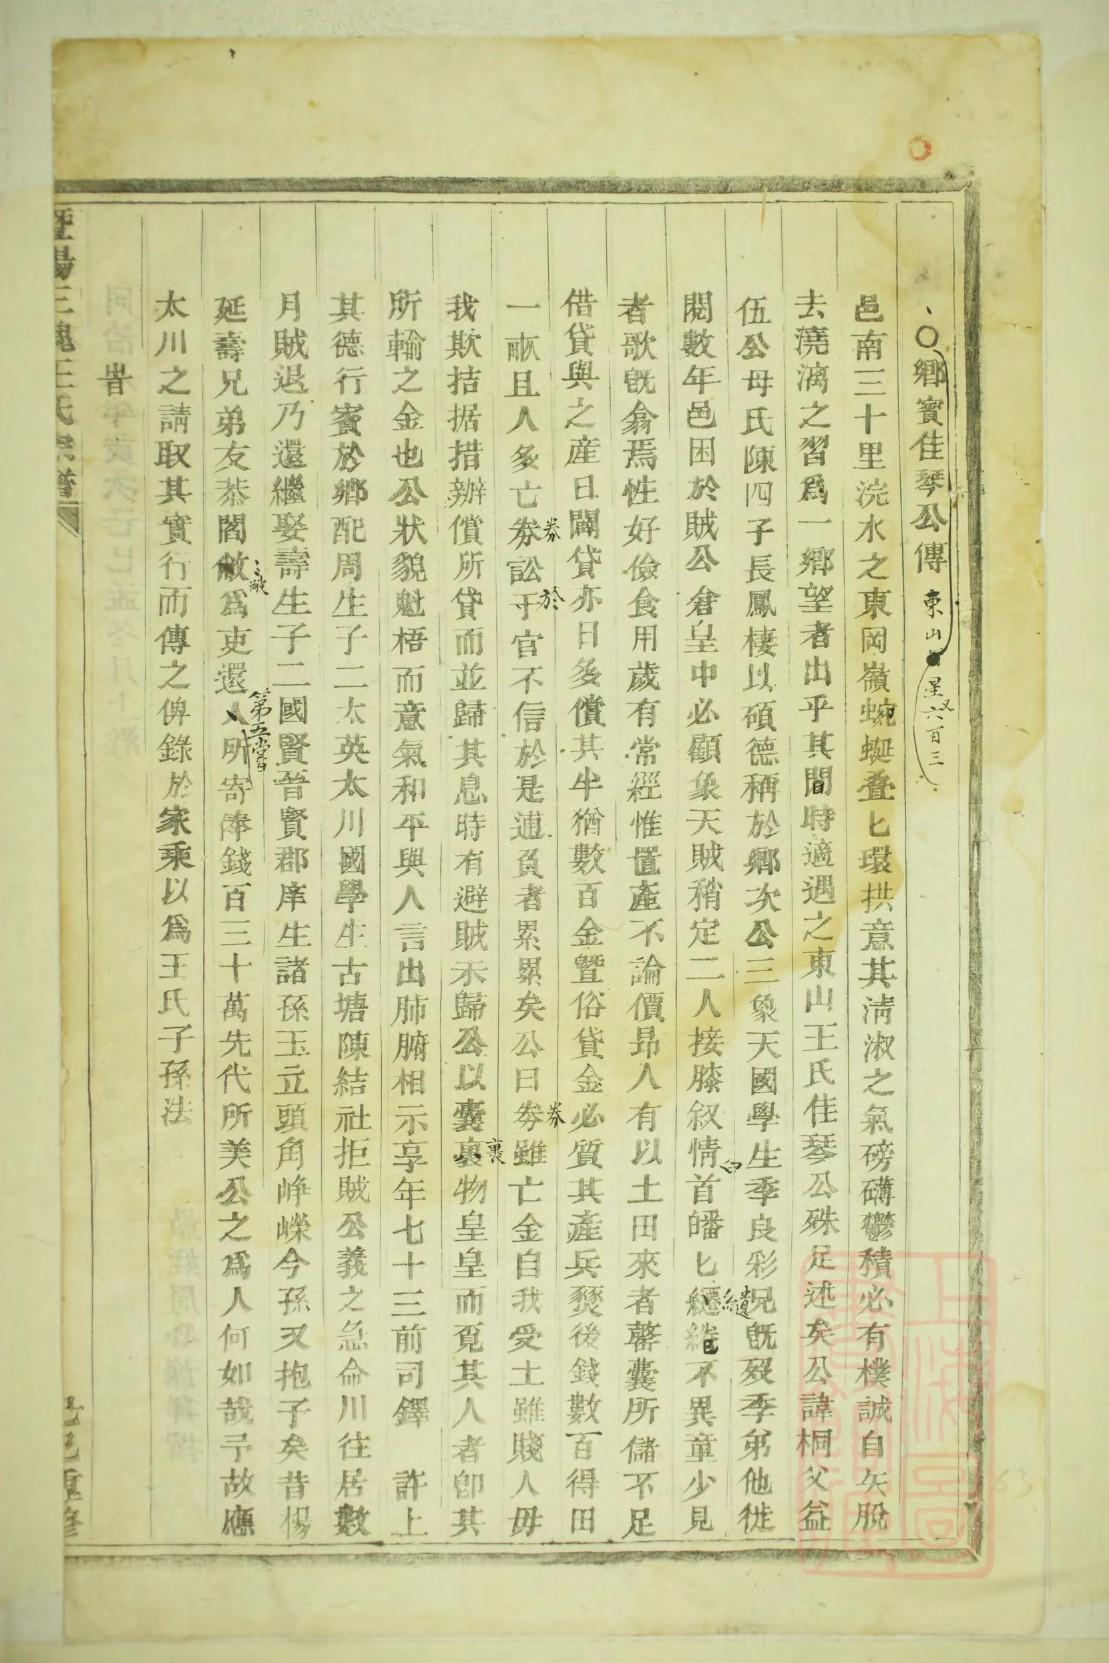 鄉賓佳琴公傳 東山 星六百三
邑南三十里浣水之東岡嶺蜿蜒疊匕環拱意其淸淑之氣磅礴鬱積必有樸誠自矢脫
去澆漓之習爲一鄉望者出乎其間時適遇之東山王氏佳琴公殊足述矣公諱桐父益
伍公母氏陳四子長鳳棲以碩德稱於鄉次公三象天國學生季良彩兄旣歿季弟他徙
閱數年邑困於賊公倉皇中必顧象天賊稍定二人接膝叙情首皤匕繾綣不異童少見
者歌旣翕焉性好儉食用歲有常經惟置產不論價昻人有以土田來者罄囊所儲不足
借貸與之產日闢貸亦日多償其半猶數百金曁俗貸金必質其產兵燹後錢數百得田
一畝且人多亡券訟于官不信於是逋負者累累矣公曰券雖亡金自我受土雖賤人毋
我欺拮据措辦償所貸而並歸其息時有避賊未歸公以囊裏物皇皇而覓其人者卽其
所輸之金也公狀貌魁梧而意氣和平與人言出肺腑相示享年七十三前司鐸 許上
其德行賓於鄉配周生子二太英太川國學生古塘陳結社拒賊公義之急命川往居數
月賊退乃還繼娶壽生子二國賢晉賢郡庠生諸孫玉立頭角崢嶸今孫又抱子矣昔楊
延壽兄弟友恭閤敝爲吏還人所寄俸錢百三十萬先代所美公之爲人何如哉予故應
太川之請取其實行而傳之俾錄於家乘以爲王氏子孫法
暨陽三槐王氏宗譜 己巳重修
券
於
券
裏
繾
第五嘗